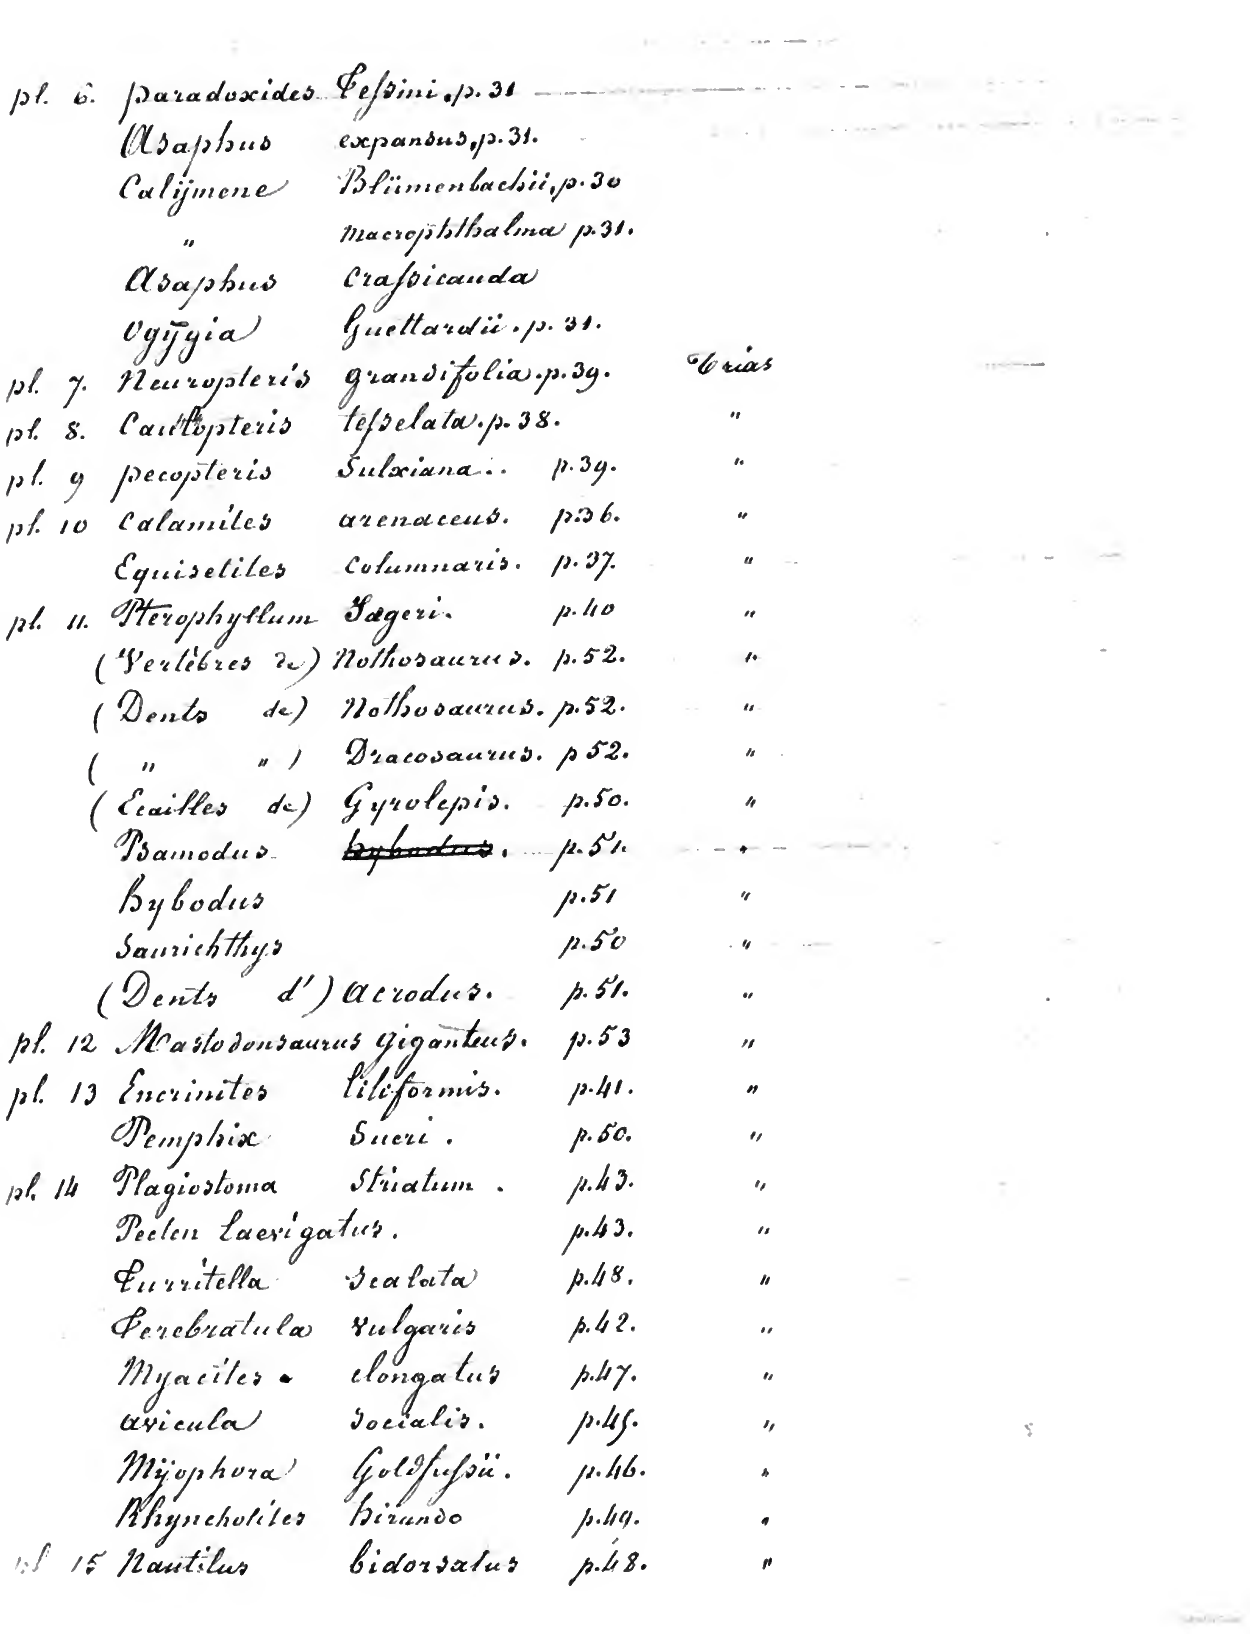 pl. 6. paradoxides Teſsini. p. 31
Asaphus expansus, p. 31.
Calÿmene Blümenbachii, p. 30
" Macrophthalma p. 31.
Asaphus Craſsicauda
Ogÿgia Guettardii. p. 31.
pl. 7. Neuropteris grandifolia. p. 39. Trias
pl. 8. Caulopteris teſselata. p. 38. "
pl. 9 pecopteris Sulxiana.. p. 39. "
pl. 10 Calamites arenaceus. p. 36. "
Equisetites Columnaris. p. 37. "
pl. 11. Pterophyllum Jægeri. p. 40 "
(Vertèbres de) Nothosaurus. p. 52. "
(Dents de) Nothosaurus. p. 52. "
( " " ) Dracosaurus. p 52. "
(Ecailles de) Gyrolepis. p. 50. "
Psamodus hybodus. p. 51. "
hybodus p. 51 "
Saurichthys p. 50 "
(Dents d') Acrodus. p. 51. "
pl. 12 Mastodonsaurus giganteus. p. 53 "
pl. 13 Encrinites liliformis. p. 41. "
Pemphix Sueri. p. 50. "
pl. 14 Plagiostoma Striatum. p. 43. "
Pecten Laevigatus. p. 43. "
Turritella Scalata p. 48. "
Terebratula vulgaris p. 42. "
Myacites elongatus p. 47. "
avicula Socialis. p. 45. "
Mÿophora Goldfuſsii. p. 46. "
Rhyncholites hirundo p. 49. "
pl 15 Nautilus bidorsatus p. 48. "